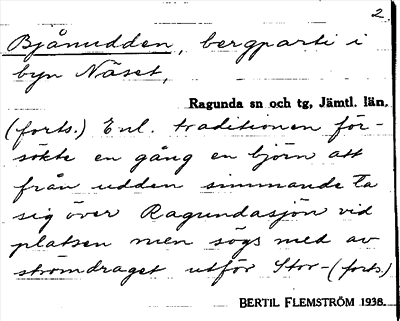 2.
Bjånudden, bergparti i
byn Näset,
Ragunda sn och tg, Jämtl. län.
(forts.) Enl. traditionen för-
sökte en gång en björn att
från udden simmande ta
sig över Ragundasjön vid
platsen men sögs med av
strömdraget utför Stor-(forts.)
BERTIL FLEMSTRÖM 1938.